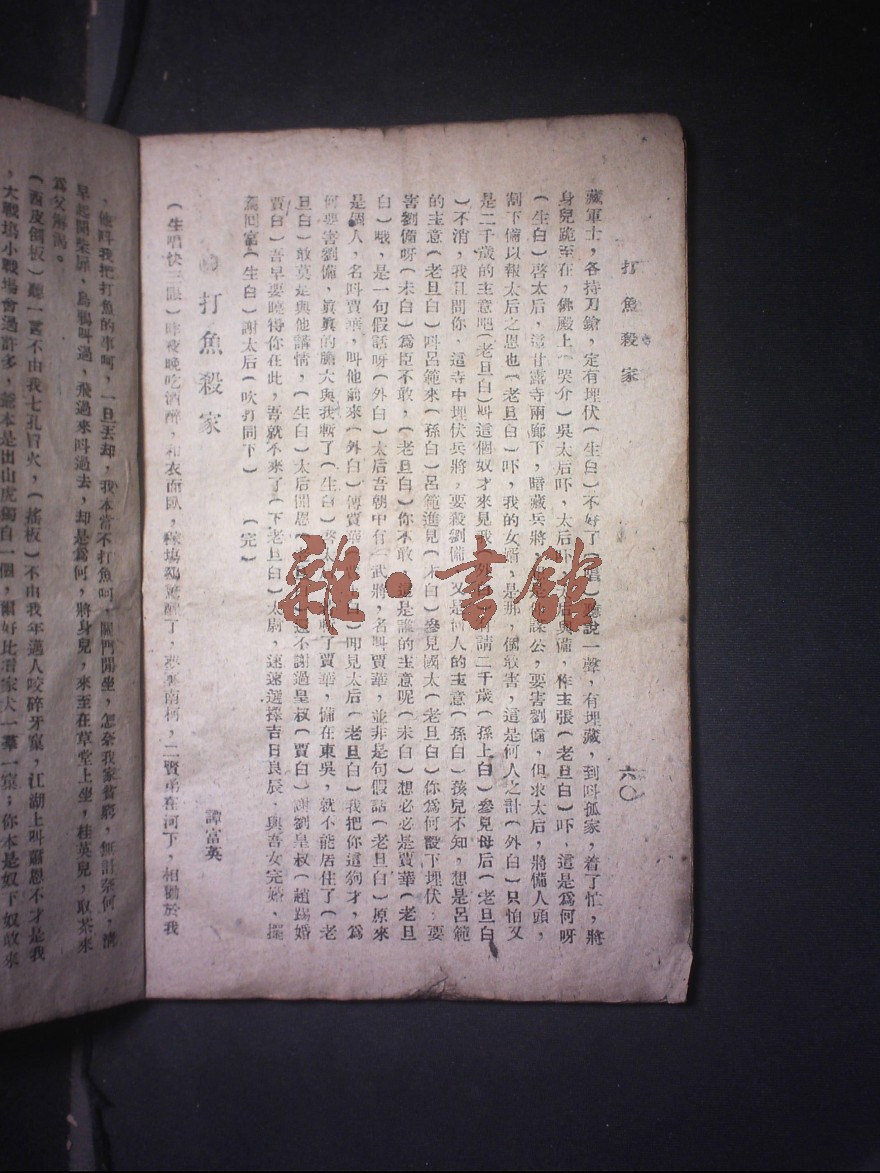 打魚殺家
六〇
藏軍士，各持刀鎗，定有埋伏（生白）不好了（唱）聽說一聲，有埋藏，到叫孤家，着了忙，將
身兒跪至在，佛殿上（哭介）吳太后吓，太后吓 與備，作主張（老旦白）吓，這是爲何呀
（生白）啓太后，這甘露寺兩廊下，暗藏兵將 謀公，要害劉備，但求太后，將備人頭，
割下備以報太后之恩也（老旦白）吓，我的女婿，是那，個敢害，這是何人之計（外白）只怕又
是二千歲的主意吧（老旦白）叫這個奴才來見我（外白）有請二千歲（孫上白）參見母后（老旦白
）不消，我且問你，這寺中埋伏兵將，要殺劉備，又是何人的主意（孫白）孩兒不知，想是呂範
的主意（老旦白）叫呂範來（孫白）呂範進見（末白）參見國太（老旦白）你爲何設下埋伏，要
害劉備呀（末白）爲臣不敢，（老旦白）你不敢 這是誰的主意呢（末白）想必必是賈華（老旦
白）哦，是一句假話呀（外白）太后吾朝中有一武將，名叫賈華，並非是句假話（老旦白）原來
是個人，名叫賈華，叫他前來（外白）傳賈華 白）叩見太后（老旦白）我把你這狗才，爲
何要害劉備，眞眞的膽大與我斬了（生白）啓太 斬了賈華，備在東吳，就不能居住了（老
旦白）敢莫是與他講情，（生白）太后開恩 還不謝過皇叔（賈白）謝劉皇叔（趙踢婚
賈白）吾早要曉得你在此，吾就不來了（下老旦白）太尉，速速選擇吉日良辰，與吾女完婚，擺
宴回宮（生白）謝太后（吹打同下） （完）
打魚殺家
譚富英
（生唱快三眼）昨夜晚吃酒醉，和衣而臥，稼場鷄驚醒了，夢裏南柯，二賢弟在河下，相勸於我
，他叫我把打魚的事呵，一旦丟却，我本當不打魚呵，關門閒坐，怎奈我家貧窮，無計奈何，淸
早起開柴扉，烏鴉叫過，飛過來叫過去，却是爲何，將身兒，來至在草堂上坐，桂英兒，取茶來
爲父解渴。
（西皮倒板）聽一言不由我七孔冒火，（搖板）不由我年邁人咬碎牙窠，江湖上叫蕭恩不才是我
，大戰塲小戰塲會過許多，爺本是出山虎獨自一個，爾好比看家犬一羣一窠；你本是奴下奴敢來
雜·書館